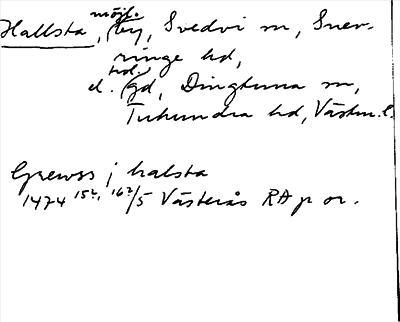 möjl.
Hallsta, (by, Svedvi sn, Snev-
ringe hd,
trol.
el. (gd, Dingtuna sn,
Tuhundra hd, Västm. l.
Grewss j halsta
1474 15?, 16?/5 Västerås RA p or.